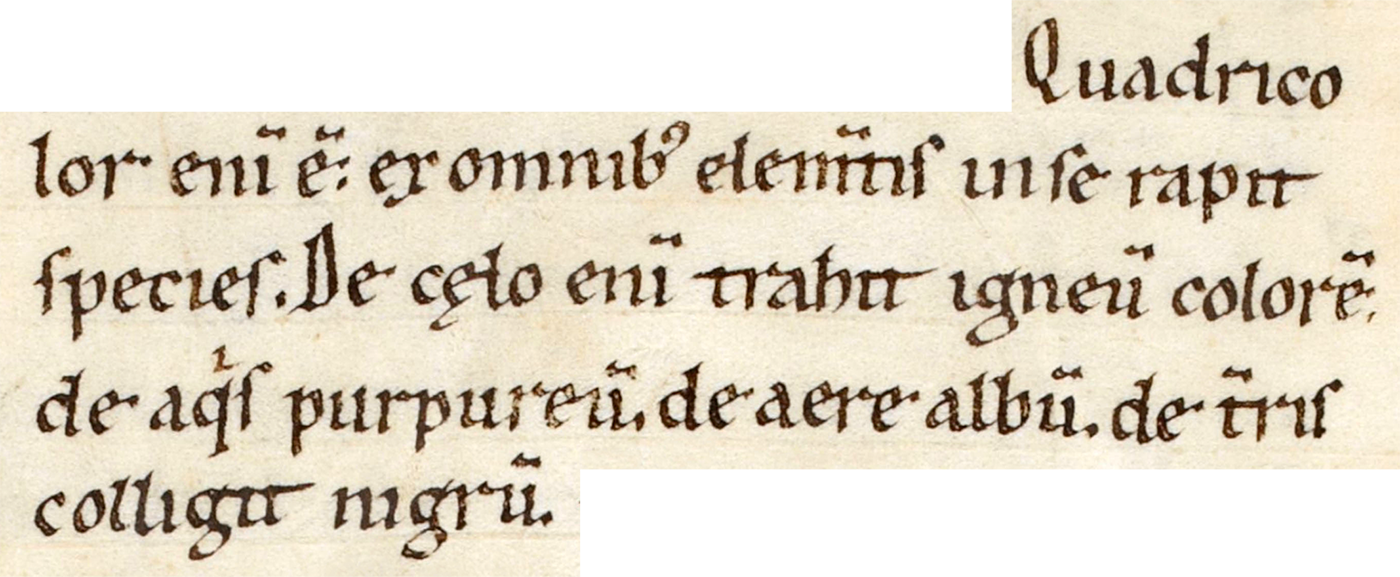 Quadrico
lor enī ē: ex omnibꝰ elem̄tis in se rapit
species. De cęlo enī trahit igneū colorē.
de aqͥs purpureū. de aere albū. de t̄ris
colligit nigrū.